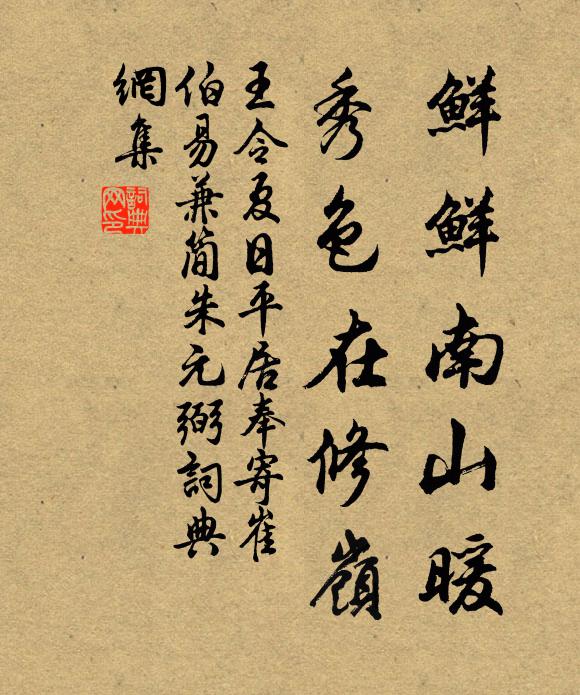 鮮鮮南山暖
秀色在修嶺
王令夏日平居奉寄崔
伯易兼簡朱元弼詞典
網集
詞典
网印